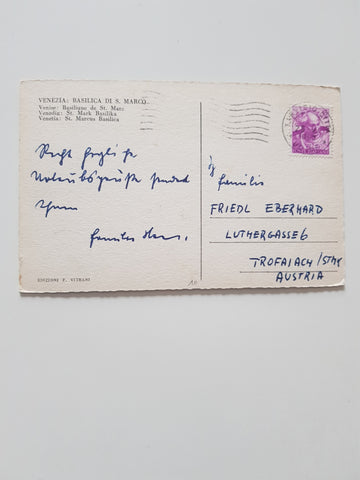 VENEZIA: BASILICA DI S. MARCO
Venise: Basiliane de St. Marc
Venedig: St. Mark Basilika
Venetia: St. Marcus Basilica
Recht herzliche
Urlaubsgrüße sendet
Ihnen
Familie
EDIZIONI F. VITRANI
Familie
FRIEDL EBERHARD
LUTHERGASSE 6
TROFAIACH/STMK
AUSTRIA